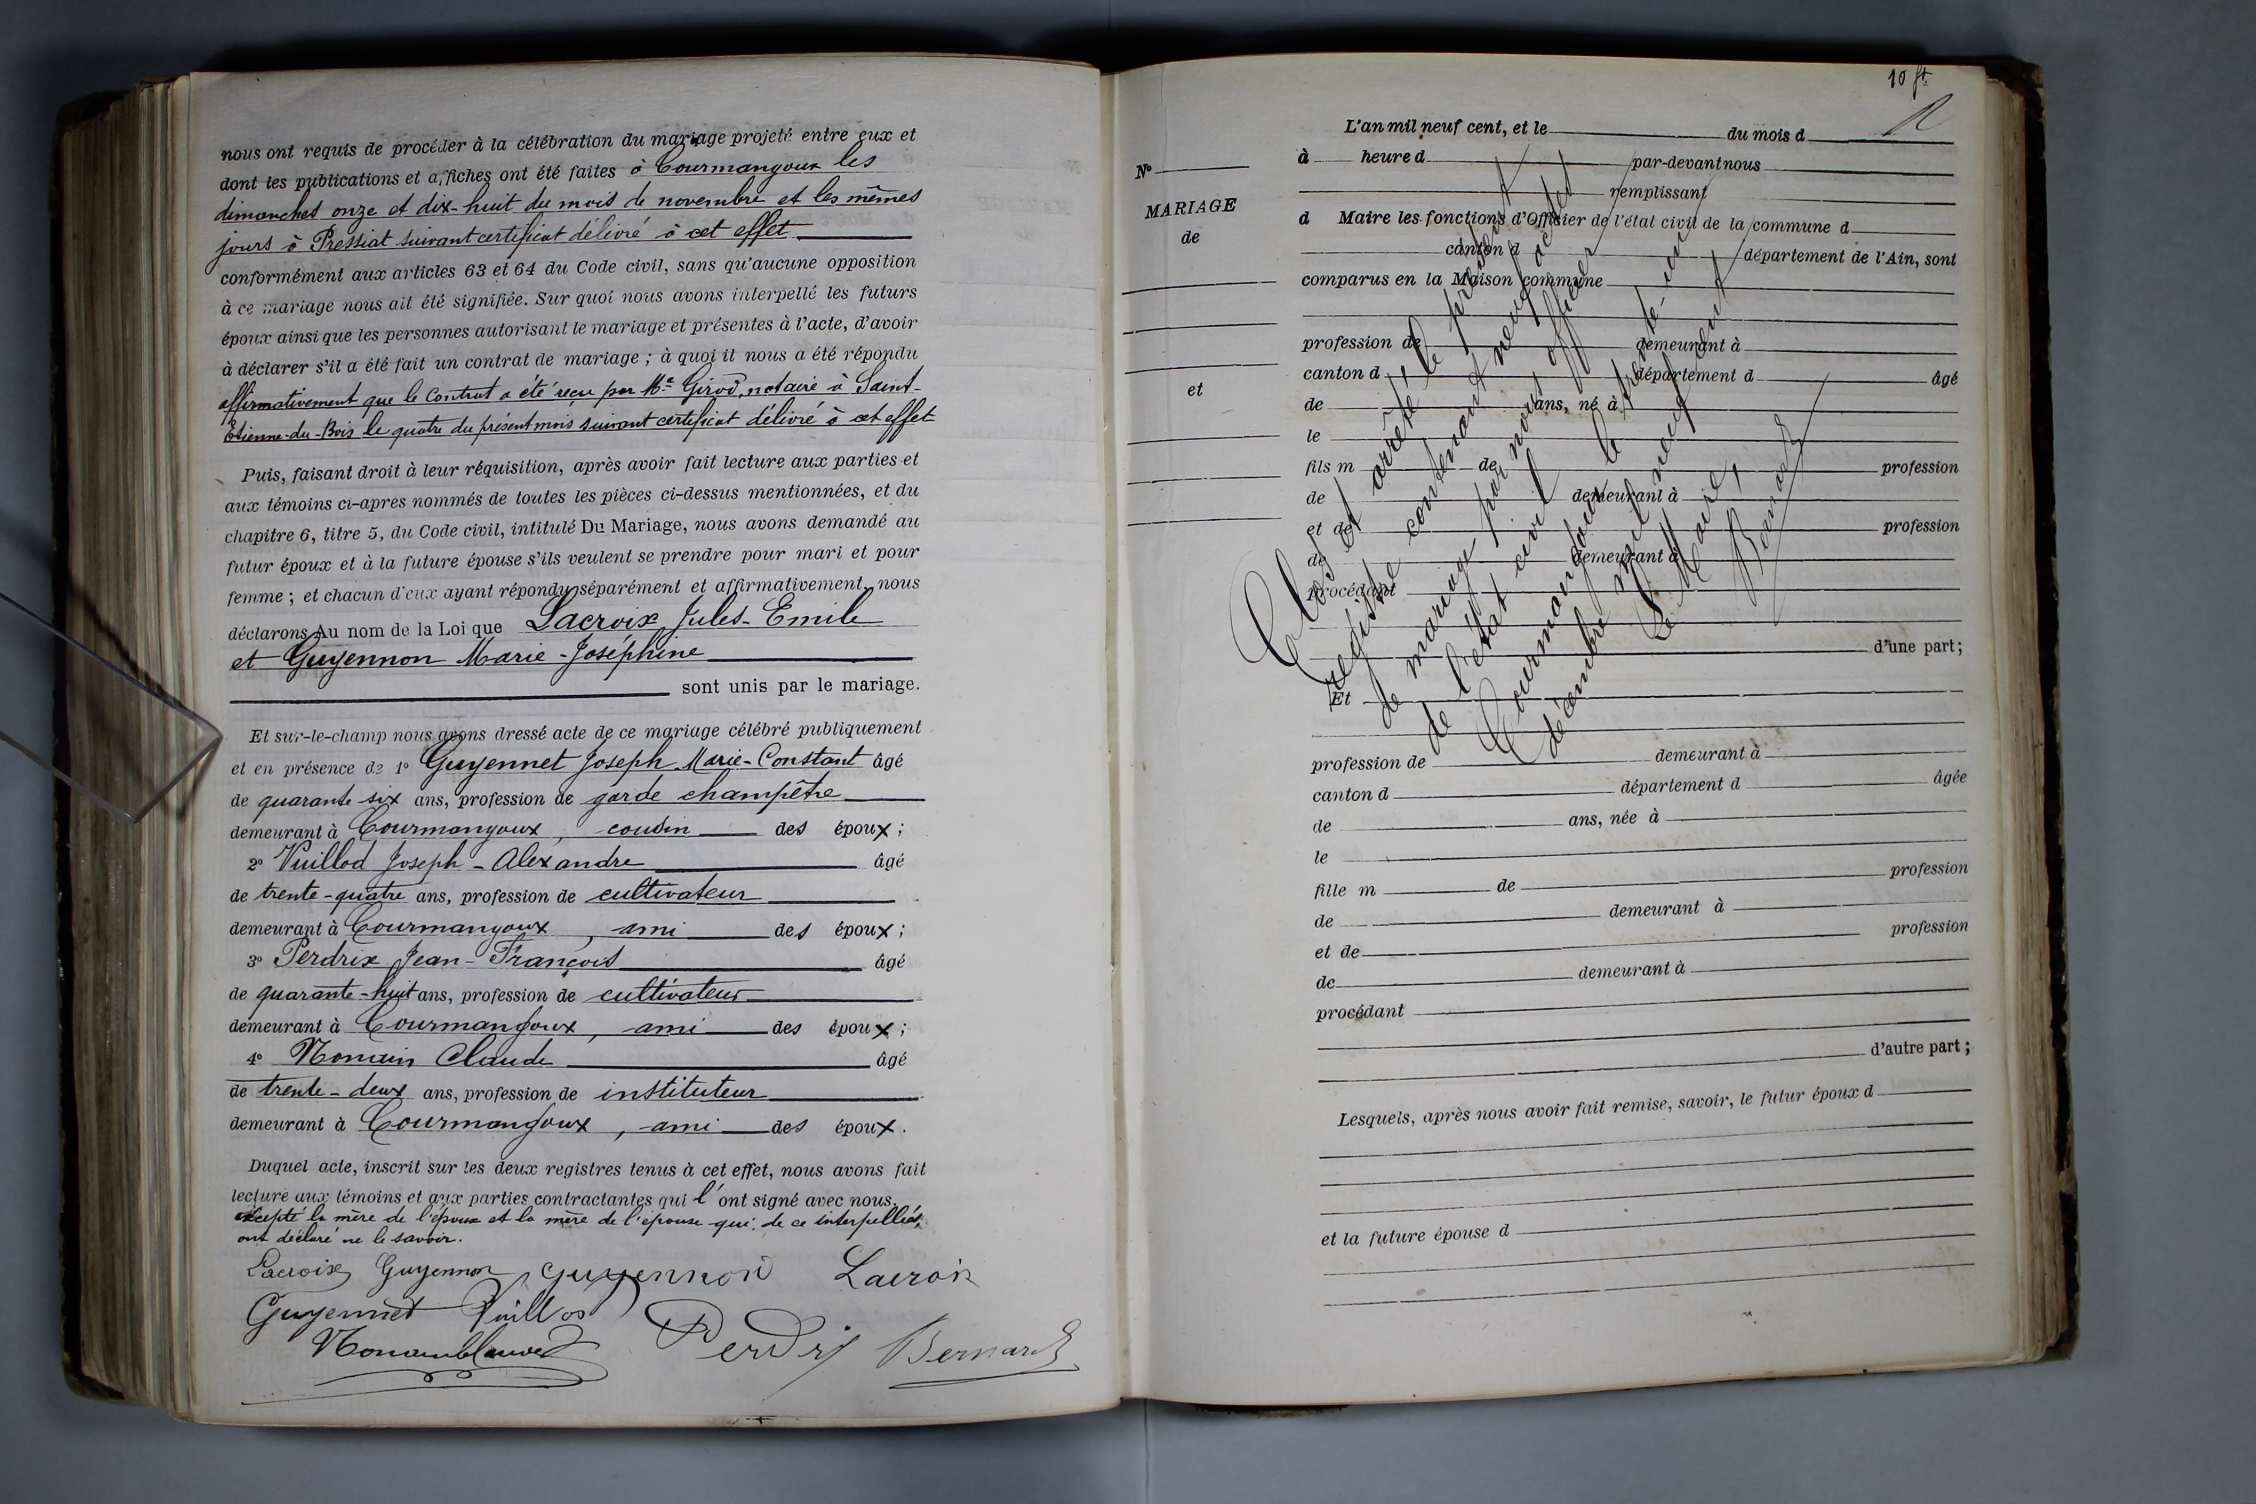 nous ont requis de procéder à la célébration du mariage projeté entre eux et
dont les publications et affiches ont été faites à Courmangoux les
dimanches onze et dix-huit du mois de novembre et les mêmes
jours à Pressiat suivant certificat délivré à cet effet
conformément aux articles 63 et 64 du Code civil, sans qu'aucune opposition
à ce mariage nous ait été signifiée. Sur quoi nous avons interpellé les futurs
époux ainsi que les personnes autorisant le mariage et présentes à l'acte, d'avoir
à déclarer s'il a été fait un contrat de mariage ; à quoi il nous a été répondu
affirmativement que le contrat a été reçu par Me Girod, notaire à Saint-
Etienne-du-Bois le quatre du présent mois suivant certificat délivré à cet effet
Puis, faisant droit à leur réquisition, après avoir fait lecture aux parties et
aux témoins ci-apres nommés de toutes les pièces ci-dessus mentionnées, et du
chapitre 6, titre 5, du Code civil, intitulé Du Mariage, nous avons demandé au
futur époux et à la future épouse s'ils veulent se prendre pour mari et pour
femme ; et chacun d'eux ayant répondu séparément et affirmativement, nous
déclarons Au nom de la Loi que Lacroix Jules-Emile
et Guyennon Marie-Joséphine
sont unis par le mariage.
Et sur-le-champ nous avons dressé acte de ce mariage célébré publiquement
et en présence de 1o Guyennet Joseph Marie-Constant âgé
de quarante six ans, profession de garde champêtre
demeurant à Courmangoux, cousin des époux ;
2o Vuillod Joseph-Alexandre âgé
de trente-quatre ans, profession de cultivateur
demeurant à Courmangoux, ami des époux ;
3o Perdrix Jean-François âgé
de quarante-huit ans, profession de cultivateur
demeurant à Courmangoux, ami des époux ;
4o Monain Claude âgé
de trente-deux ans, profession de instituteur
demeurant à Courmangoux, ami des époux.
Duquel acte, inscrit sur les deux registres tenus à cet effet, nous avons fait
lecture aux témoins et aux parties contractantes qui l'ont signé avec nous.
excepté la mère de l'époux et la mère de l'épouse qui, de ce interpellées,
ont déclaré ne le savoir.
Lacroix Guyennon Guyennon Lacroix
Guyennet Vuillod
Perdrix Bernard
10 ft
L'an mil neuf cent, et le du mois d
à heure d par-devant nous
remplissant
d Maire les fonctions d'Officier de l'état civil de la commune d
canton d département de l'Ain, sont
comparus en la Maison commune
profession de demeurant à
canton d département d âgé
de ans, né à
le
fils m de profession
de demeurant à
et de profession
de demeurant à
procédant
d'une part ;
Et
profession de demeurant à
canton d département d âgée
de ans, née à
le
fille m de profession
de demeurant à
et de profession
de demeurant à
procédant
d'autre part ;
Lesquels, après nous avoir fait remise, savoir, le futur époux d
et la future épouse d
No
MARIAGE
de
et
Clos et arrêté le présent
registre contenant neuf actes
de mariage par nous officier
de l'état civil le trente-un
Courmangoux
décembre mil neuf cent
Le Maire,
Bernard